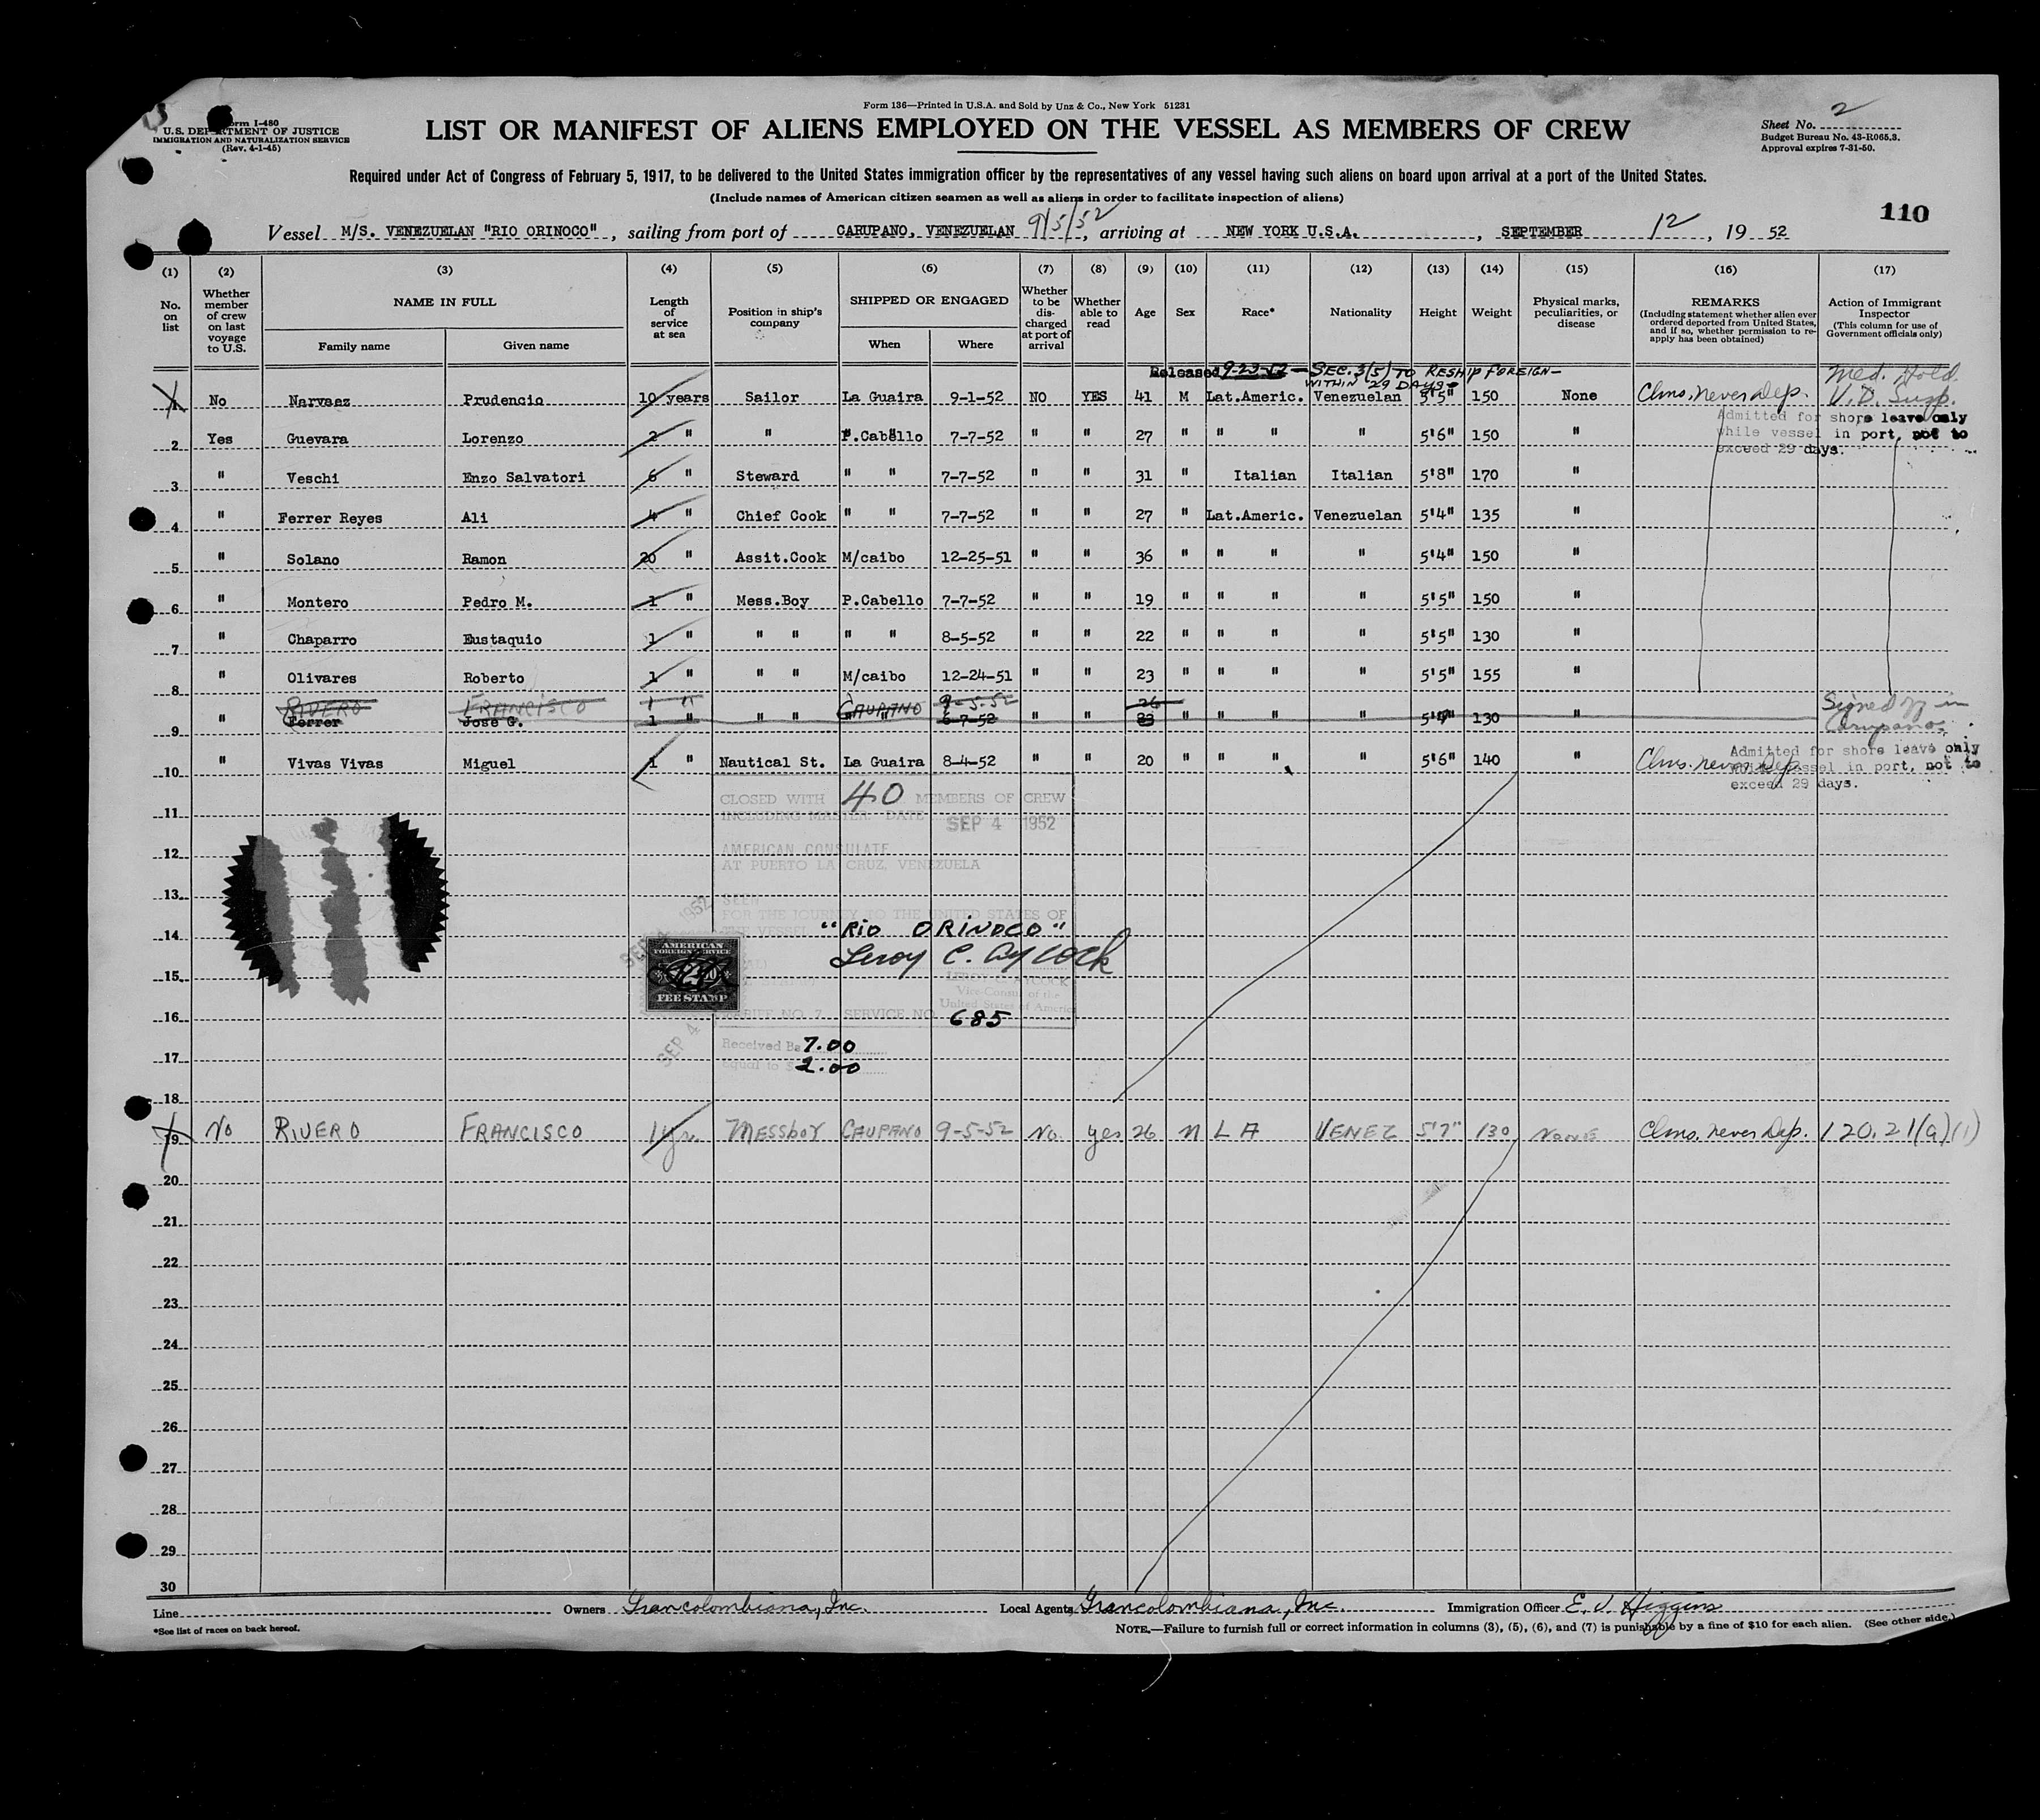 Form 136—Printed in U.S.A. and Sold by Unz & Co., New York 51231
Form I-480
U.S. DEPARTMENT OF JUSTICE
IMMIGRATION AND NATURALIZATION SERVICE
(Rev. 4-1-45)
LIST OR MANIFEST OF ALIENS EMPLOYED ON THE VESSEL AS MEMBERS OF CREW
Sheet No. 2
Budget Bureau No. 43-R065.3.
Approval expires 7-31-50.
Required under Act of Congress of February 5, 1917, to be delivered to the United States immigration officer by the representatives of any vessel having such aliens on board upon arrival at a port of the United States.
(Include names of American citizen seamen as well as aliens in order to facilitate inspection of aliens)
110
Vessel M/S. VENEZUELAN "RIO ORINOCO", sailing from port of CARUPANO, VENEZUELAN 9/5/52, arriving at NEW YORK U.S.A., SEPTEMBER 12, 19 52
(1) (2) (3) (4) (5) (6) (7) (8) (9) (10) (11) (12) (13) (14) (15) (16) (17)
No. on list
Whether member of crew on last voyage to U.S.
NAME IN FULL
Family name
Given name
Length of service at sea
Position in ship's company
SHIPPED OR ENGAGED
When
Where
Whether to be discharged at port of arrival
Whether able to read
Age
Sex
Race*
Nationality
Height
Weight
Physical marks, peculiarities, or disease
REMARKS
(Including statement whether alien ever ordered deported from United States, and if so, whether permission to re-apply has been obtained)
Action of Immigrant Inspector
(This column for use of Government officials only)
Released 9-23-52 — SEC. 3(5) TO RESHIP FOREIGN —
WITHIN 29 DAYS —
Med. Hold.
1 No Narvaez Prudencio 10 years Sailor La Guaira 9-1-52 NO YES 41 M Lat.Americ. Venezuelan 5'5" 150 None Clms. never Dep. V.D. Susp.
Admitted for shore leave only
while vessel in port, not to
exceed 29 days.
2 Yes Guevara Lorenzo 2 " " P.Cabello 7-7-52 " " 27 " " " " 5'6" 150 "
3 " Veschi Enzo Salvatori 6 " Steward " " 7-7-52 " " 31 " Italian Italian 5'8" 170 "
4 " Ferrer Reyes Ali 4 " Chief Cook " " 7-7-52 " " 27 " Lat.Americ. Venezuelan 5'4" 135 "
5 " Solano Ramon 20 " Assit.Cook M/caibo 12-25-51 " " 36 " " " " 5'4" 150 "
6 " Montero Pedro M. 1 " Mess.Boy P.Cabello 7-7-52 " " 19 " " " " 5'5" 150 "
7 " Chaparro Eustaquio 1 " " " " " 8-5-52 " " 22 " " " " 5'5" 130 "
8 " Olivares Roberto 1 " " " M/caibo 12-24-51 " " 23 " " " " 5'5" 155 "
RIVERO FRANCISCO 1 " CAUPANO 9-5-52 26
9 " Ferrer Jose G. 1 " " " " 6-7-52 " " 23 " " " " 130 "
Signed in
Carupano.
10 " Vivas Vivas Miguel 1 " Nautical St. La Guaira 8-4-52 " " 20 " " " " 5'6" 140 " Clms. never Dep.
Admitted for shore leave only
vessel in port, not to
exceed 29 days.
11
12
13
14
15
16
17
18
CLOSED WITH 40 MEMBERS OF CREW
INCLUDING MASTER. DATE SEP 4 1952
AMERICAN CONSULATE
AT PUERTO LA CRUZ, VENEZUELA
SEEN
FOR THE JOURNEY TO THE UNITED STATES OF
THE VESSEL "RIO ORINOCO"
Leroy C. Aycock
AYCOCK
Vice-Consul of the
United States of America
TARIFF NO. 7 SERVICE NO. 685
Received Bs 7.00
Equal to $ 2.00
AMERICAN
FOREIGN SERVICE
FEE STAMP
SEP 4 1952
SEP 4
19 No RIVERO FRANCISCO 1 yr. MESSBOY CAUPANO 9-5-52 No yes 26 M L A VENEZ 5'7" 130 NONE Clms. never Dep. 120.21(a)(1)
20
21
22
23
24
25
26
27
28
29
30
Line
Owners Grancolombiana, Inc.
Local Agents Grancolombiana, Inc.
Immigration Officer E. J. Higgins
*See list of races on back hereof.
NOTE.—Failure to furnish full or correct information in columns (3), (5), (6), and (7) is punishable by a fine of $10 for each alien. (See other side.)